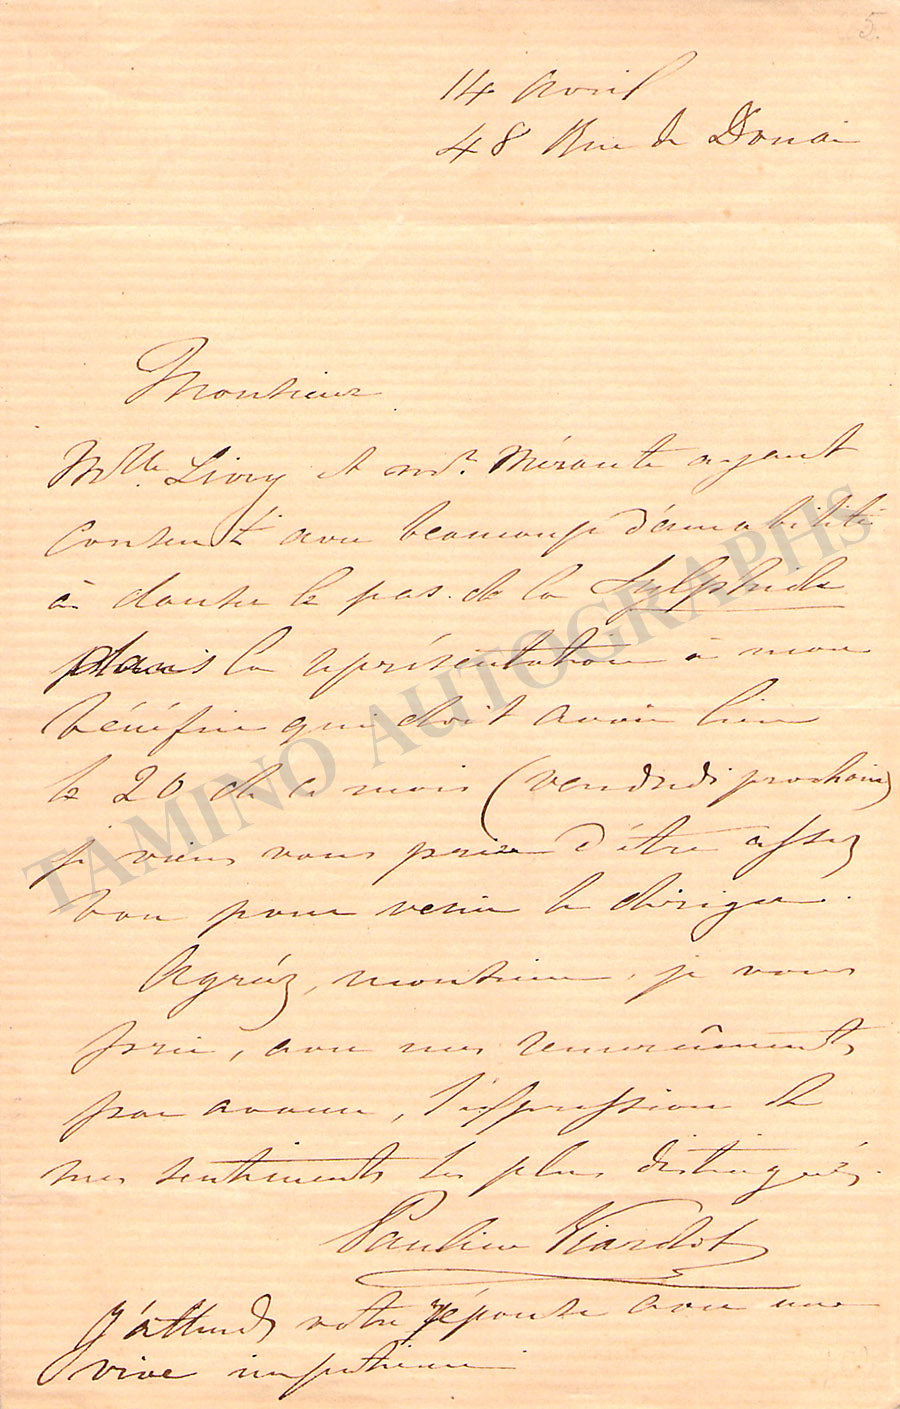 5.
14 avril
48 Rue de Douai
Monsieur
Mlle. Livry et Mr. Mérante ayant
consenti avec beaucoup d'amabilité
à danser le pas de la Sylphide
dans la représentation à mon
bénéfice qui doit avoir lieu
le 20 de ce mois (vendredi prochain)
je viens vous prier d'être assez
bon pour venir le diriger.
Agréez, monsieur, je vous
prie, avec mes remercîments
par avance, l'expression de
mes sentiments les plus distingués.
Pauline Viardot
J'attends votre réponse avec une
vive impatience
TAMINO AUTOGRAPHS